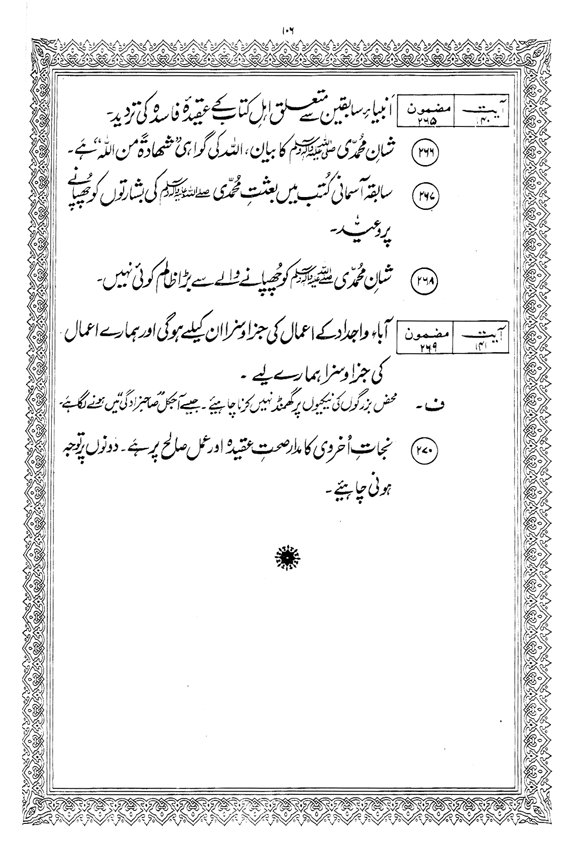 ۱۰۶
آیت ۱۴۰ مضمون ۲۶۵ انبیاءِ سابقین سے متعلق اہل کتاب کے عقیدۂ فاسدہ کی تردید۔
(۲۶۶) شانِ محمّدی صلی اللہ علیہ وسلم کا بیان، اللہ کی گواہی "شھادۃ من اللہ" ہے۔
(۲۶۷) سابقہ آسمانی کتب میں بعثتِ محمّدی صلی اللہ علیہ وسلم کی بشارتوں کو چھپانے
پر وعید۔
(۲۶۸) شانِ محمّدی صلی اللہ علیہ وسلم کو چھپانے والے سے بڑا ظالم کوئی نہیں۔
آیت ۱۴۱ مضمون ۲۶۹ آباء و اجداد کے اعمال کی جزا و سزا ان کیلئے ہوگی اور ہمارے اعمال
کی جزا و سزا ہمارے لیے ۔
ف۔ محض بزرگوں کی نیکیوں پر گھمنڈ نہیں کرنا چاہیئے۔ جیسے آجکل "صاحبزادگی" میں ہونے لگا ہے،
(۲۷۰) نجاتِ اُخروی کا مدار صحتِ عقیدہ اور عمل صالح پر ہے۔ دونوں پر توجہ
ہونی چاہیئے ۔